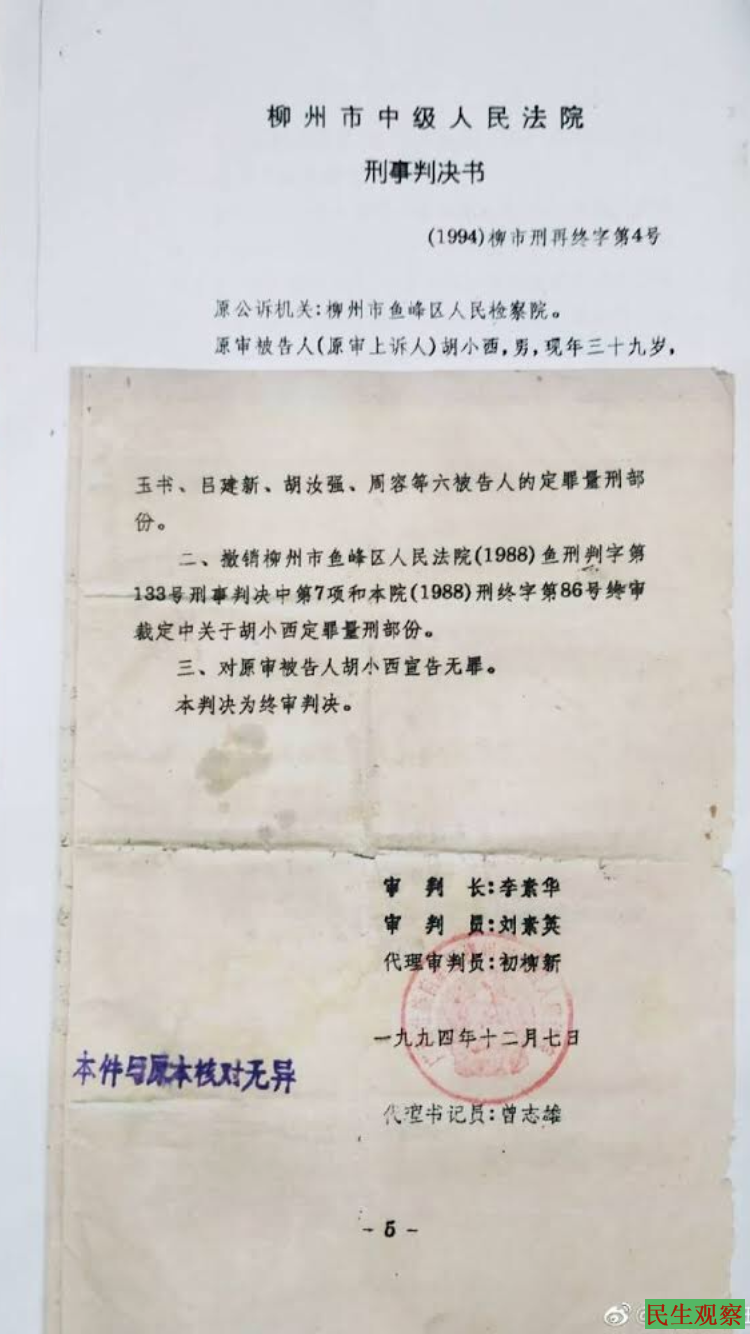 柳州市中级人民法院
刑事判决书
(1994)柳市刑再终字第4号
原公诉机关:柳州市鱼峰区人民检察院。
原审被告人(原审上诉人)胡小西,男,现年三十九岁,
玉书、吕建新、胡汝强、周容等六被告人的定罪量刑部
份。
二、撤销柳州市鱼峰区人民法院(1988)鱼刑判字第
133号刑事判决中第7项和本院(1988)刑终字第86号终审
裁定中关于胡小西定罪量刑部份。
三、对原审被告人胡小西宣告无罪。
本判决为终审判决。
审判长:李素华
审判员:刘素英
代理审判员:初柳新
一九九四年十二月七日
本件与原本核对无异
代理书记员:曾志雄
- 5 -
民生观察